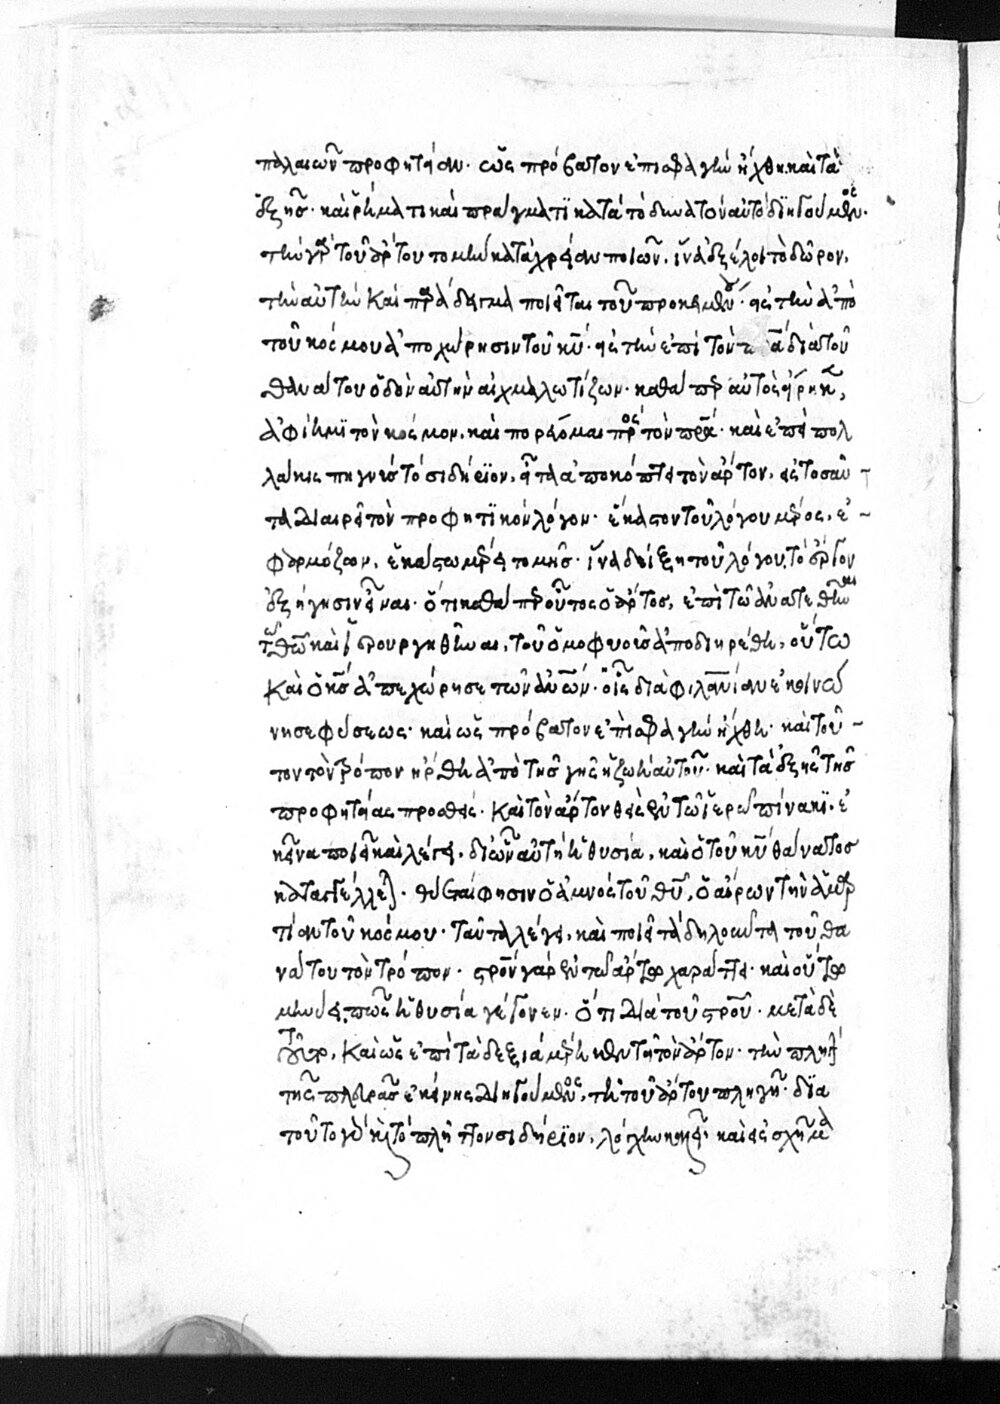 παλαιῶν προφητείαν· ὡς πρόβατον ἐπὶ σφαγὴν ἤχθη. καὶ τὰ
ἑξῆς· καὶ ῥήματι καὶ πράγματι κατὰ τὸ δυνατὸν αὐτὸ διηγούμενος·
τὴν γὰρ τοῦ ἄρτου τομὴν κατὰ χρείαν ποιῶν, ἵνα ἐξέλοι τὸ δῶρον,
τὴν αὐτὴν καὶ παράδειγμα ποιεῖται τοῦ προκειμένου· εἰς τὴν ἀπὸ
τοῦ κόσμου ἀποχώρησιν τοῦ κυ· εἰς τὴν ἐπὶ τὸν πρα διὰ τοῦ
θανάτου ὁδὸν αὐτὴν
ἀφίημι τὸν κόσμον, καὶ πορεύομαι πρὸς τὸν πρα· καὶ ἐπεὶ πολ
λάκις πηγνὺς τὸ σιδήριον, εἶτα ἀποκόπτει τὸν ἄρτον, εἰς τοσαῦ
τα διαιρεῖ τὸν προφητικὸν λόγον· ἕκαστον τοῦ λόγου μέρος, ἐ
φαρμόζων, ἑκάστω μέρει τομῆς· ἵνα δείξη τοῦ λόγου, τὸ ἔργον
ἐξήγησιν εἶναι· ὅτι καθάπερ οὗτος ὁ ἄρτος, ἐπὶ τῶ ἀνατεθῆναι
τῶ θω καὶ ἱερουργηθῆναι, τοῦ ὁμοφυοῦς ἀποδιηρέθη, οὕτω
καὶ ὁ κς ἀπεχώρησε τῶν ανων· οἷς διὰ φιλανίαν ἐκοινώ
νησε φύσεως· καὶ ὡς πρόβατον ἐπὶ σφαγὴν ἤχθη· καὶ τοῦ
τον τὸν τρόπον ἤρθη ἀπὸ τῆς γῆς ἡ ζωὴ αὐτοῦ· καὶ τὰ ἑξῆς τῆς
προφητείας προσθείς· καὶ τὸν ἄρτον θεὶς ἐν τῶ ἱερῶ πίνακι, ἐ
κεῖνα ποιεῖ καὶ λέγει, δι' ὧν αὐτὴ ἡ θυσία, καὶ ὁ τοῦ κυ θάνατος
καταγγέλλεται· θύεται φησὶν ὁ ἀμνὸς τοῦ θυ, ὁ αἴρων τὴν ἁμαρ
τίαν τοῦ κόσμου· ταῦτα λέγει, καὶ ποιεῖ τὰ δηλοῦντα τοῦ θα
νάτου τὸν τρόπον· στρὸν γὰρ ἐν τῶ ἄρτω χαράττει· καὶ οὕτω
μηνύει, πῶς ἡ θυσία γέγονεν· ὅτι διὰ τοῦ στροῦ· μετὰ δὲ
τοῦτο, καὶ ὡς ἐπὶ τὰ δεξιὰ μέρη κεντεῖ τὸν ἄρτον· τὴν πληγὴν
τῆς πλευρᾶς ἐκείνης διηγούμενος, τῆ τοῦ ἄρτου πληγῆ· διὰ
τοῦτο γὰρ καὶ τὸ πλῆττον σιδήριον, λόγχην καλεῖ· καὶ εἰς σχῆμα